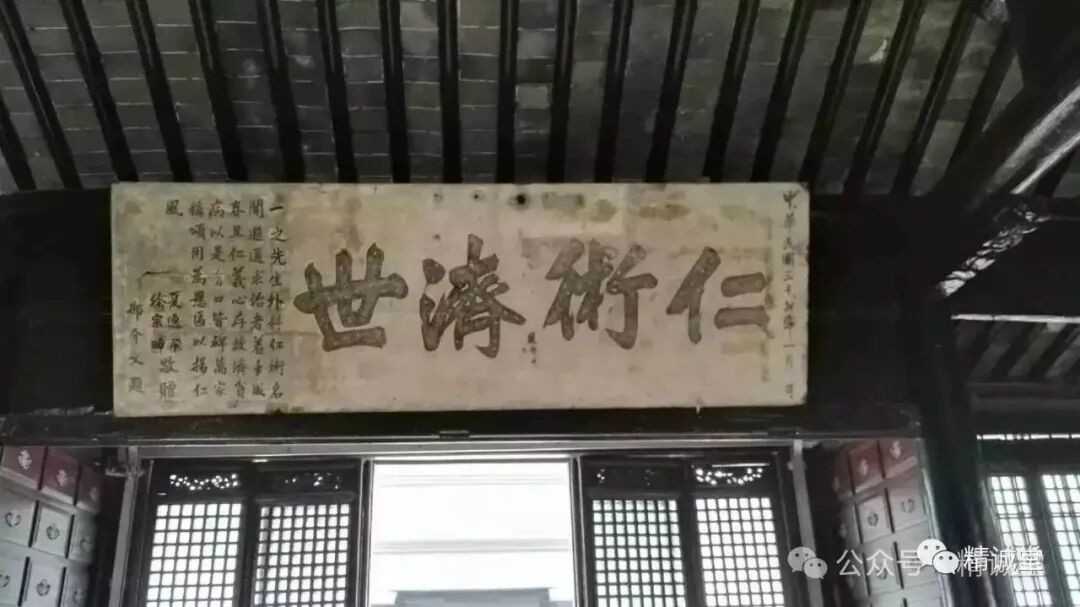 中華民國三十七年一月
仁術濟世
一之先生外科仁術名
聞遐邇求治者著手成
春且仁義心存救濟貧
病以是有口皆碑萬家
稱頌用萬懸匾以揚仁
風
夏逸飛
徐宗 敬贈
介文題
公众号 精诚堂
精诚堂